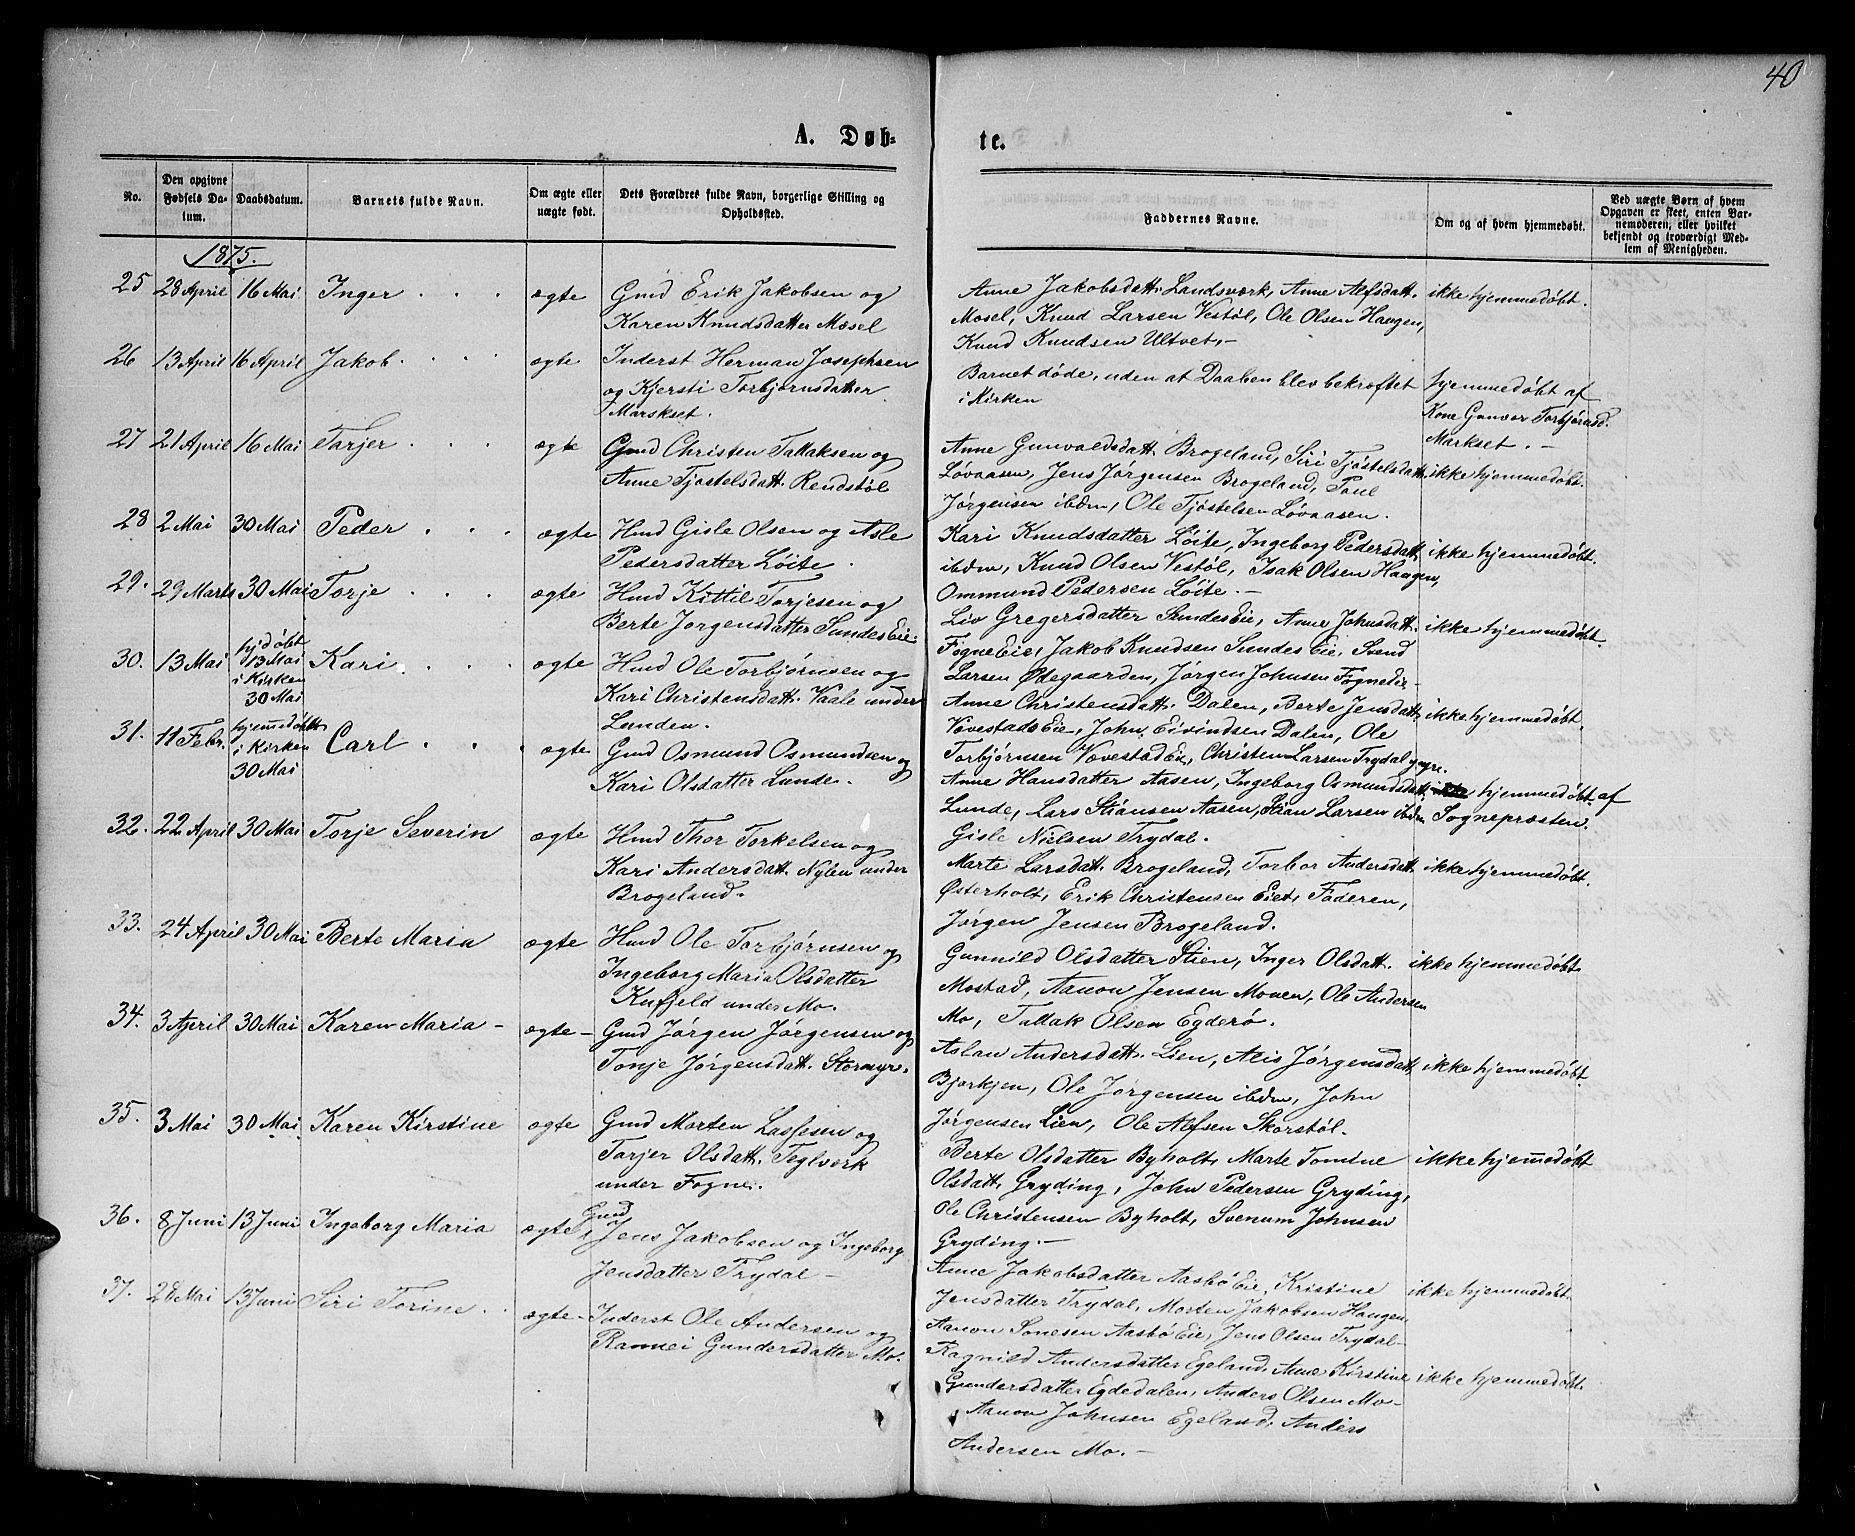 40
A. Døb-
te.
No.
Den opgivne Fødsels Da-tum.
Daabsdatum.
Barnets fulde Navn.
Om ægte eller uægte født.
Dets Forældres fulde Navn, borgerlige Stilling og Opholdssted.
Faddernes Navne.
Om og af hvem hjemmedøbt.
Ved uægte Børn af hvem Opgaven er skeet, enten Bar-nemoderen, eller hvilket bekjendt og troværdigt Med-lem af Menigheden.
1875.
25 28 April 16 Mai Inger ægte Gmd Erik Jakobsen og
Karen Knudsdatter Mosel
Anne Jakobsdatt. Landsværk, Anne Alfsdatt. ikke hjemmedøbt.
Mosel, Knud Larsen Vestøl, Ole Olsen Haugen,
Knud Knudsen Ultvet.-
26 13 April 16 April Jakob. ægte Inderst Herman Josephsen
og Kjersti Torbjørnsdatter
Markset.
Barnet døde, uden at Daaben blev bekræftet
i Kirken
hjemmedøbt af
Kone Gunvor Torbjørnsd.
Markset.-
27 21 April 16 Mai Tarjer ægte Gmd Christen Tallaksen og
Anne Tjøstelsdatt. Rendstøl
Anne Gunvaldsdatt. Brogeland, Siri Tjøstelsdatt. ikke hjemmedøbt.
Løvaasen, Jens Jørgensen Brogeland, Poul
Jørgensen ibdm, Ole Tjøstelsen Løvaasen.
28 2 Mai 30 Mai Peder ægte Hmd Gisle Olsen og Asle
Pedersdatter Løite.
Kari Knudsdatter Løite, Ingeborg Pedersdatt. ikke hjemmedøbt.
ibdm, Knud Olsen Vestøl, Isak Olsen Haugen,
Ommund Pedersen Løite.-
29. 29 Marts 30 Mai Torje ægte Hmd Kittil Torjesen og
Berte Jørgensdatter Sundes Eie.
Liv Gregersdatter Sundes Eie, Anne Johnsdatt. ikke hjemmedøbt.
Fogne Eie, Jakob Knudsen Sundes Eie, Svend
Larsen Ødegaarden, Jørgen Johnsen Fogne Eie-
30. 13 Mai hjdøbt
13 Mai
i Kirken
30 Mai
Kari. ægte Hmd Ole Torbjørnsen og
Kari Christensdatt. Vaale under
Lunden.
Anne Christensdatt. Dalen, Berte Jensdatt. ikke hjemmedøbt.
Vævestads Eie, John Eivindsen Dalen, Ole
Torbjørnsen Vævestad Eie, Christen Larsen Trydal
31. 11 Febr. hjemmedøbt
i Kirken
30 Mai
Carl ægte Gmd Osmund Osmundsen og
Kari Olsdatter Lunde.
Anne Hansdatter Aasen, Ingeborg Osmundsdatt. hjemmedøbt af
Lunde, Lars Stiansen Aasen, Stian Larsen ibdm Sognepræsten.
Gisle Nielsen Trydal.
32. 22 April 30 Mai Torje Severin ægte Hmd Thor Torkelsen og
Kari Andersdatt. Nylen under
Brogeland.
Marte Larsdatt. Brogeland, Torbor Andersdatt. ikke hjemmedøbt.
Østerholt, Erik Christensen Eiet, Faderen,
Jørgen Jensen Brogeland.
33. 24 April 30 Mai Berte Maria ægte Hmd Ole Torbjørnsen og
Ingeborg Maria Olsdatter
Kufjeld under Mo.
Gunnild Olsdatter Stien, Inger Olsdatt. ikke hjemmedøbt
Mostad, Aanon Jensen Monen, Ole Andersen
Mo, Tallak Olsen Egderø.
34. 3 April 30 Mai Karen Maria - ægte - Gmd Jørgen Jørgensen og
Tonje Jørgensdatt. Stormyr.
Aslau Andersdatt. Lien, Alis Jørgensdatt. ikke hjemmedøbt.
Bjorkjen, Ole Jørgensen ibdm, John
Jørgensen Lien, Ole Alfsen Skorstøl.
35. 3 Mai 30 Mai Karen Kirstine ægte Gmd Morten Lassesen og
Torjer Olsdatt. Teglverk
under Fogne.
Berte Olsdatter Byholt, Marte Tomine ikke hjemmedøbt
Olsdatt. Gryding, John Pedersen Gryding,
Ole Christensen Byholt, Svenum Johnsen
Gryding.-
36. 8 Juni 13 Juni Ingeborg Maria ægte Gmd
Jens Jakobsen og Ingeborg
Jensdatter Trydal-
Anne Jakobsdatter Aasbø Eie, Kristine ikke hjemmedøbt.
Jensdatter Trydal, Morten Jakobsen Haugen,
Aanon Sonesen Aasbø Eie, Jens Olsen Trydal-
37. 28 Mai 13 Juni Siri Torine. ægte- Inderst Ole Andersen og
Rannei Gundersdatter Mo.
Ragnild Andersdatter Egeland, Anne Kirstine ikke hjemmedøbt.
Gundersdatter Egdedalen, Anders Olsen Mo-
Aanon Johnsen Egeland, Anders
Andersen Mo.-